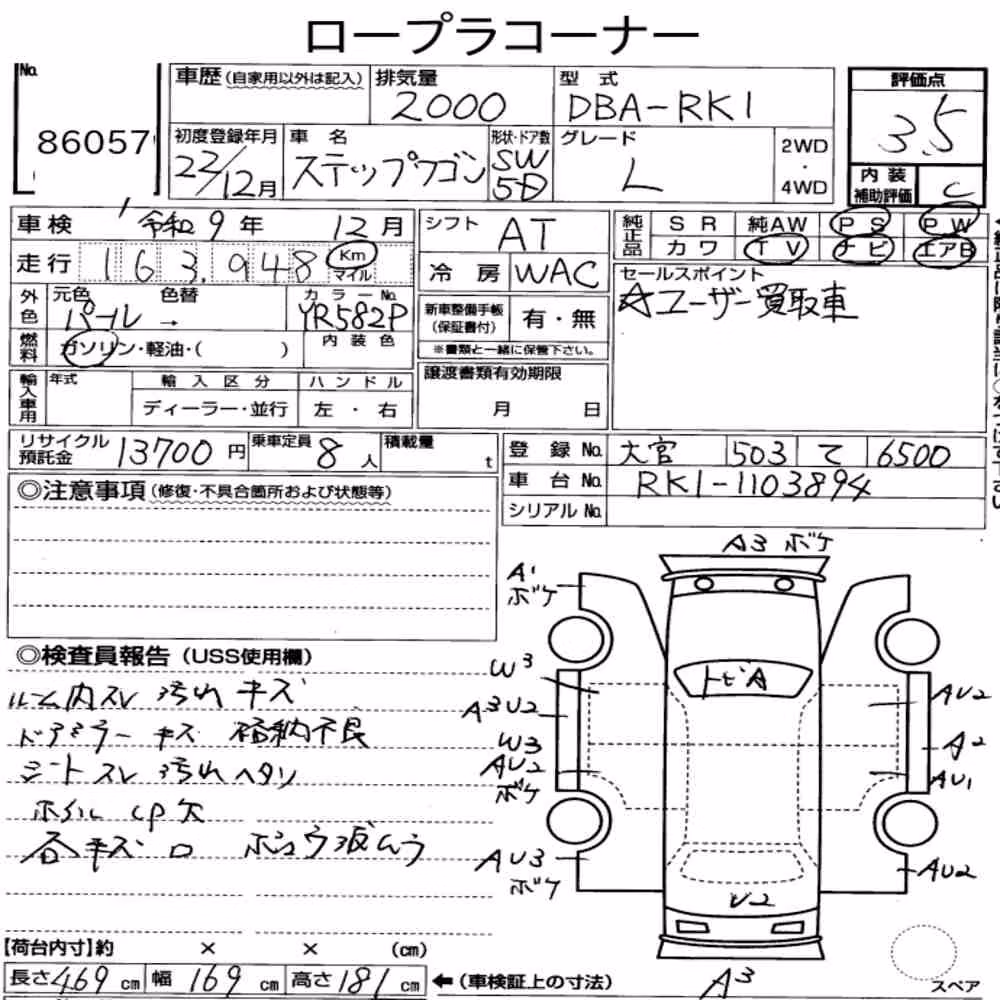 ロープラコーナー
No. 86057
車歴 (自家用以外は記入)
排気量 2000
型式 DBA-RK1
評価点 3.5
初度登録年月 22/12月
車名 ステップワゴン
形状・ドア数 SW 5D
グレード L
2WD・4WD
内装補助評価 C
車検 令和9年 12月
シフト AT
純正品 SR 純AW PS PW
カワ TV ナビ エアB
走行 163,948 Km マイル
冷房 WAC
セールスポイント
☆ユーザー買取車
外色 元色 パール → 色替
カラーNo. YR582P
新車整備手帳(保証書付) 有・無
※書類と一緒に保管下さい。
燃料 ガソリン・軽油・( )
内装色
輸入車用 年式 輸入区分 ハンドル
ディーラー・並行 左・右
譲渡書類有効期限
月 日
リサイクル預託金 13700円
乗車定員 8人
積載量 t
登録No. 大宮 503 て 6500
車台No. RK1-1103894
シリアルNo.
◎注意事項 (修復・不具合箇所および状態等)
A3 ボケ
A1 ボケ
◎検査員報告 (USS使用欄)
W3
トビA
ルーム内スレ 汚れ キズ
A3U2
AU2
ドアミラー キズ 格納不良
W3
A2
シートスレ 汚れ ヘタリ
AU2
ボケ
AU1
ホイル CP欠
各キズ ロ
AU3
ボケ
AU2
U2
【荷台内寸】約 × × (cm)
長さ 469 cm 幅 169 cm 高さ 181 cm ←(車検証上の寸法)
A3
スペア